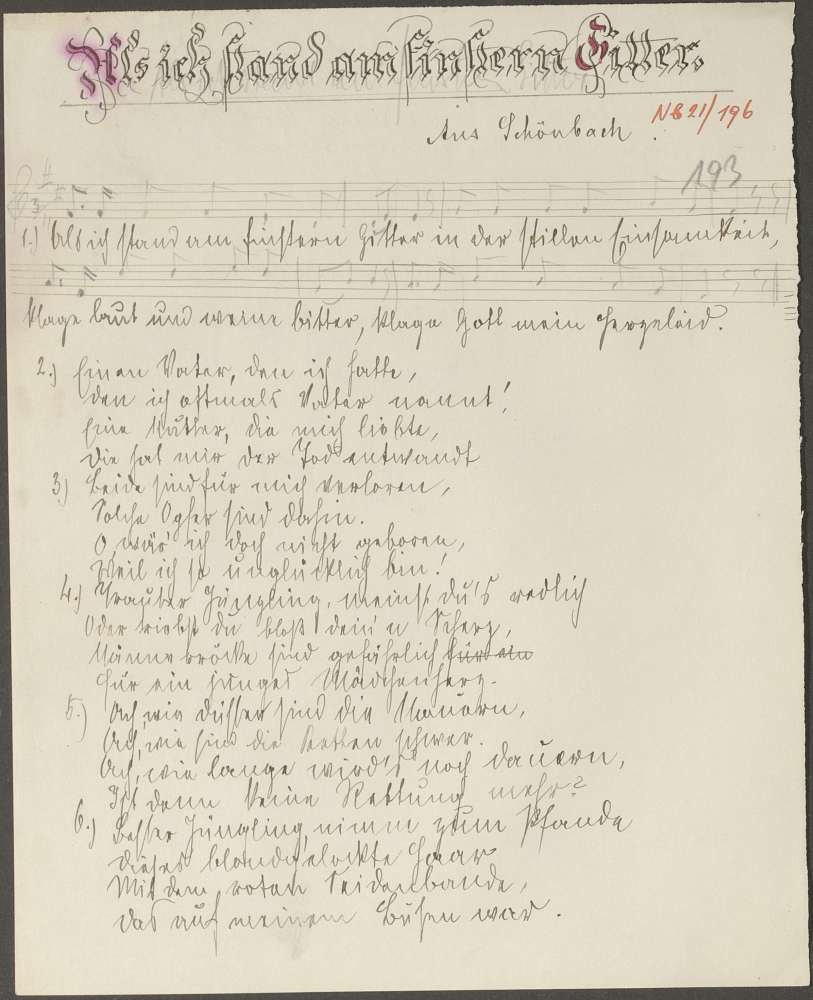 Als ich stand am finstern Gitter.
Aus Schönbach.
NB 21/196
193
1.) Als ich stand am finstern Gitter in der stillen Einsamkeit,
klage laut und weine bitter, klage Gott mein Herzeleid.
2.) Einen Vater, den ich hatte,
den ich oftmals Vater nannt!
Eine Mutter, die mich liebte,
die hat mir der Tod entwandt
3.) Beide sind für mich verloren,
Solche Opfer sind dahin.
O, wär' ich doch nicht geboren,
Weil ich so unglücklich bin!
4.) Trauter Jüngling, meinst du's redlich
Oder treibst du bloß dein'n Scherz,
Männer sind gefährlich für ein
Für ein junges Mädchenherz.
5.) Ach, wie düster sind die Mauern,
Ach, wie sind die Ketten schwer.
Ach, wie lange wird's noch dauern,
Ist denn keine Rettung mehr?
6.) Bester Jüngling, nimm zum Pfande
dieses blondgelockte Haar
Mit dem roten Seidenbande,
das auf meinem Busen war.